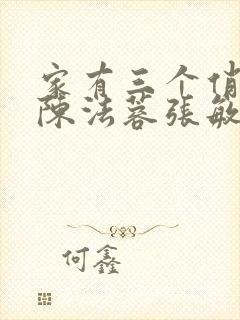 家有三个俏
陈法蓉张敏
何鑫